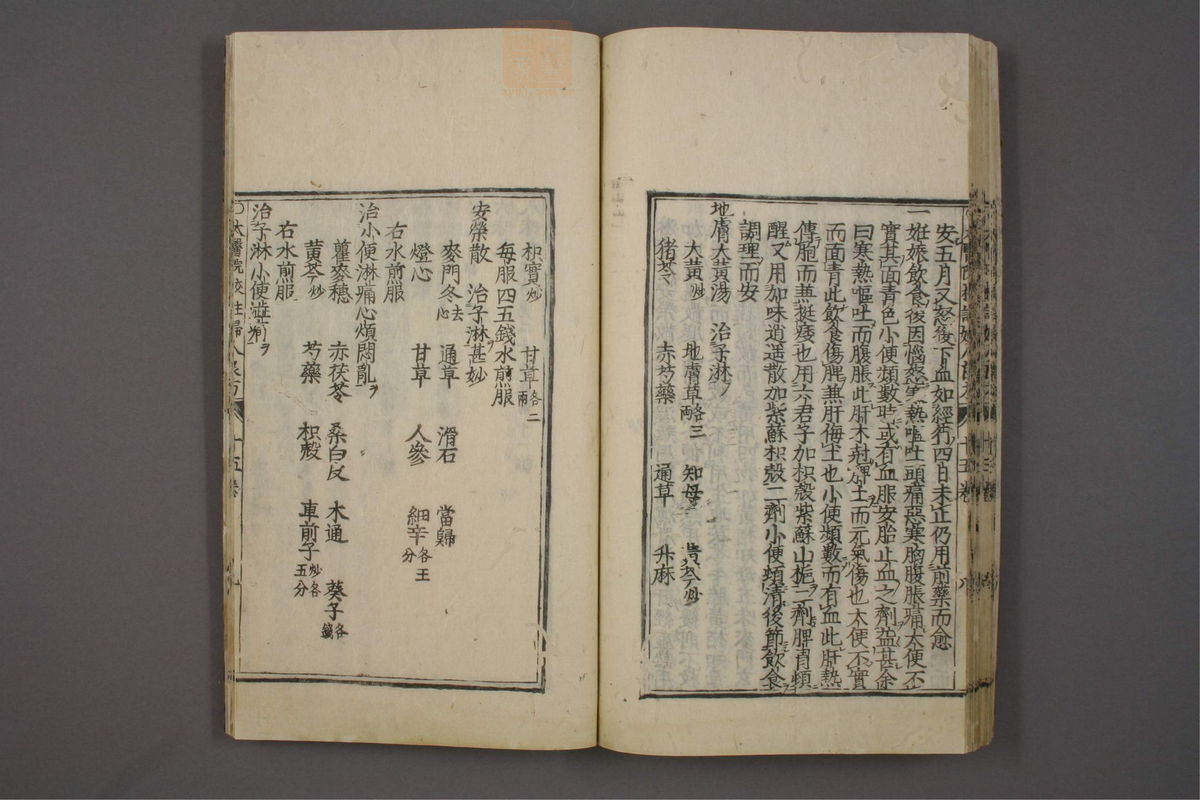 安五月又怒後下血如經行四日未止仍用前藥而愈
一姙娠飲食後因惱怒寒熱嘔吐頭痛惡寒胸腹脹痛大便不
實其面青色小便頻數時或有血服安胎止血之劑益甚余
曰寒熱嘔吐而腹脹此肝木尅脾土而元氣傷也大便不實
而面青此飲食傷脾兼肝侮土也小便頻數而有血此肝熱
傳胞而兼挺痿也用六君子加枳殻紫蘇山梔二劑脾胃頓
醒又用加味逍遥散加紫蘇枳殻二劑小便頓清後節飲食
調理而安
地膚大黄湯 治子淋ヲ
大黄炒 地膚草各三兩 知母 黄芩炒
猪苓 赤芍藥 通草 升麻
枳實炒 甘草各二兩
毎服四五錢水煎服
安榮散 治子淋甚妙
麥門冬去心 通草 滑石 當歸
燈心 甘草 人參 細辛各五分
右水煎服
治小便淋痛心煩悶亂ヲ
瞿麥穗 赤茯苓 桑白皮 木通 葵子各一錢
黄芩炒 芍藥 枳殻 車前子炒各五分
右水煎服
治子淋小便澁痛ヲ
〇太醫院校註婦人良方 十五卷 九